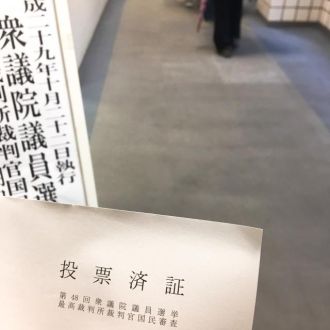 成二十九年十月二十二日執行
衆議院議員選
所裁判官国
投票済証
第48回衆議院議員選挙
最高裁判所裁判官国民審査